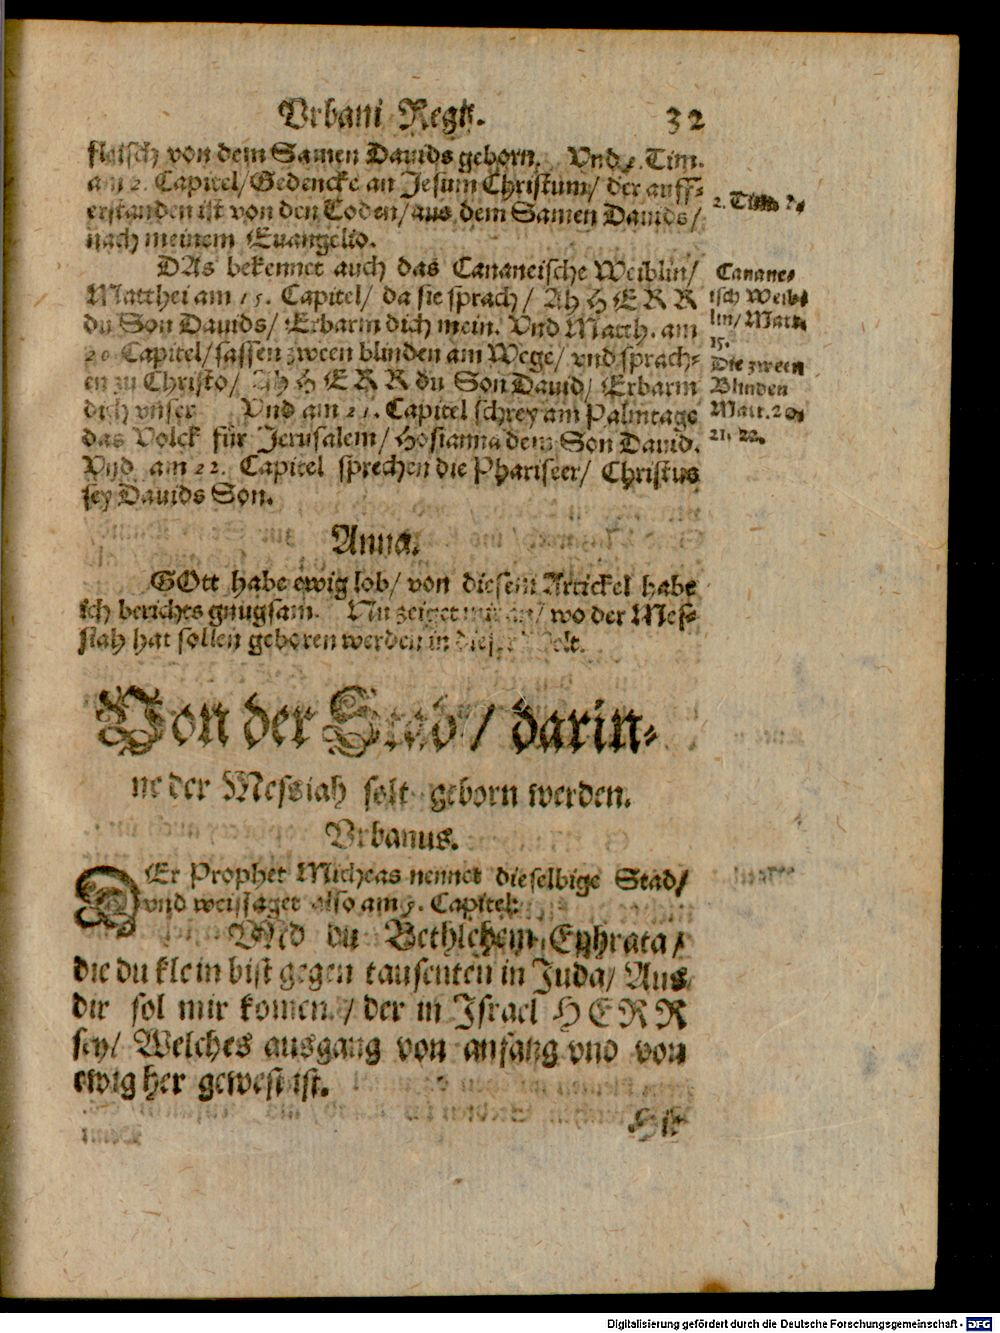 Vrbani Regij. 32
fleisch von dem Samen Dauids geborn. Vnd 2. Tim.
am 2. Capitel/ Gedencke an Jesum Christum/ der auff-
erstanden ist von den Toden/ aus dem Samen Dauids/
nach meinem Euangelio.
2. Tim. 2.
DAs bekennet auch das Cananeische Weiblin/
Matthei am 15. Capitel/ da sie sprach/ Ah HERR
du Son Dauids/ Erbarm dich mein. Vnd Matth. am
20. Capitel/ sassen zween blinden am Wege/ vnd sprach-
en zu Christo/ Ah HERR du Son Dauid/ Erbarm
dich vnser Vnd am 21. Capitel schrey am Palmtage
das Volck für Jerusalem/ Hosianna dem Son Dauid.
Vnd am 22. Capitel sprechen die Phariseer/ Christus
sey Dauids Son.
Canane-
isch Weib-
lin/ Matt.
15.
Die zween
Blinden
Matt. 20.
21. 22.
Anna.
GOtt habe ewig lob/ von diesem Artickel habe
ich berichts gnugsam. Nu zeiget mir an/ wo der Mes-
siah hat sollen geboren werden in dieser Welt.
Von der Stad/ darin-
ne der Messiah solt geborn werden.
Vrbanus.
DEr Prophet Micheas nennet dieselbige Stad/
vnd weissaget also am 5. Capitel:
VNd du Bethlehem Ephrata/
die du klein bist gegen tausenten in Juda/ Aus
dir sol mir komen/ der in Israel HERR
sey/ Welches ausgang von anfang vnd von
ewig her gewest ist.
Digitalisierung gefördert durch die Deutsche Forschungsgemeinschaft - DFG